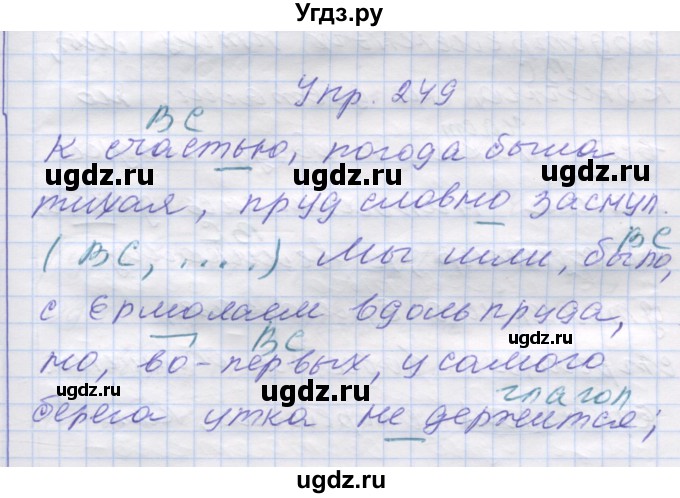 Угдз.ру
Упр. 249
ВС
К счастью, погода была
ugdz.ru ugdz.ru
тихая, пруд словно заснул.
ugdz.ru ВС
(ВС, ....) Мы шли, было,
ugdz.ru
с Ермолаем вдоль пруда,
ВС
но, во-первых, у самого
ugdz.ru ugdz.ru ugdz.ru
глагол
берега утка не держится;
ugdz.ru